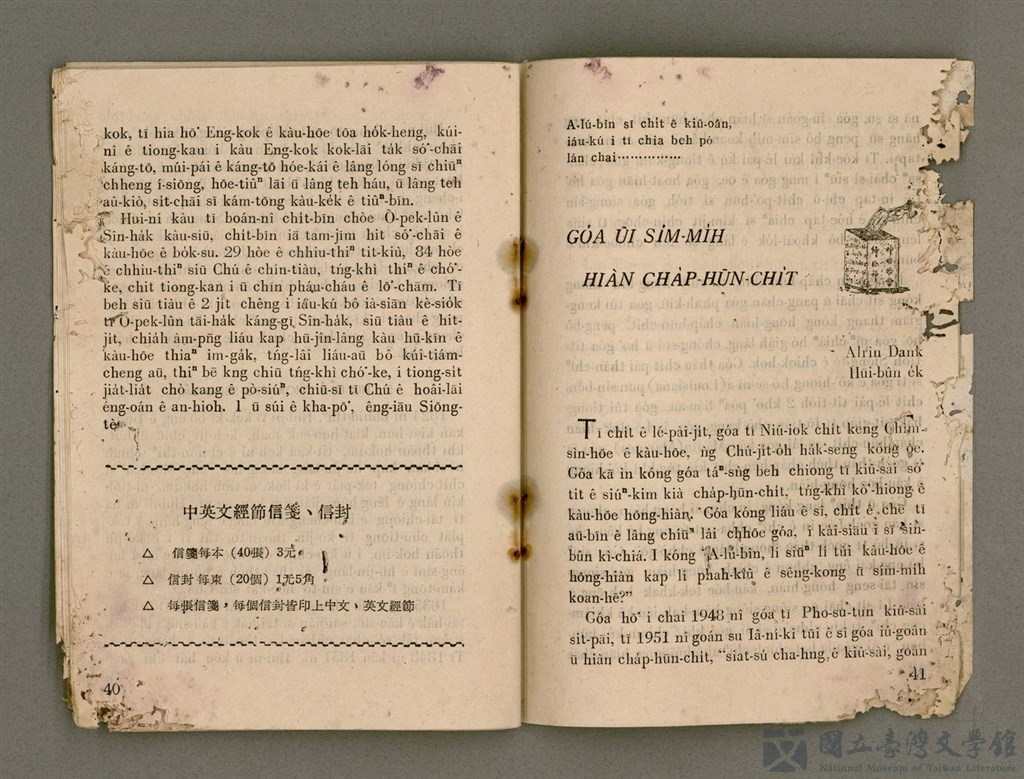 kok, tī hia hō͘ Eng-kok ê kàu-hōe tōa ho̍k-heng, kúi-
nî ê tiong-kau i kàu Eng-kok kok-lāi ta̍k só͘-chāi
káng-tō, múi-pái ê káng-tō hōe-kái ê lâng lóng sī chiūⁿ
chheng í-siōng, hōe-tiûⁿ lāi ū lâng teh háu, ū lâng teh
aú-kiò, si̍t-chāi sī kám-tōng kàu-ke̍k ê tiûⁿ-bīn.
Hui-ní kàu tī boán-nî chi̍t-bīn chòe O͘-pek-lûn ê
Sîn-ha̍k kàu-siū, chi̍t-bīn iā tam-jīm hit só͘-chāi ê
kàu-hōe ê bo̍k-su. 29 hòe ê chhiu-thiⁿ tit-kiù, 84 hòe
ê chhiu-thiⁿ siū Chú ê chín-tiàu, tńg-khì thiⁿ ê chó͘-
ke, chit tiong-kan i ū chin pháu-cháu ê lō͘-chām. Tī
beh siū tiàu ê 2 ji̍t chêng i iáu-kú bô ià-siān kè-sio̍k
tī O͘-pek-lûn tāi-ha̍k káng-gī Sîn-ha̍k, siū tiàu ê hit-
ji̍t, chia̍h àm-pn̄g liáu kap hū-jîn-lâng kàu hū-kīn ê
kàu-hōe thiaⁿ im-ga̍k, tńg-lâi liáu-aū bô kúi-tiám-
cheng aū, thiⁿ bē kng chiū tńg-khì chó͘-ke, i tiong-sit
jia̍t-lia̍t chò kang ê pò-siúⁿ, chiū-sī tī Chú ê hoâi-lāi
éng-oán ê an-hioh. I ū súi ê kha-pō͘, êng-iāu Siōng-
tè.
中英文經節信箋、信封
△ 信箋每本（40張）3元。
△ 信封每束（20個）1元5角
△ 每張信箋，每個信封皆印上中文、英文經節
40
A-lú-bîn sī chi̍t ê kiû-oân,
iáu-kú i tī chia beh pò
lán chai……………
GÓA ŪI SÍM-MI̍H
HIÀN CHA̍P-HŪN-CHI̍T
Alrin Dank
Hūi-bûn e̍k
Tī chi̍t ê lé-pài-ji̍t, góa tī Niú-iok chi̍t keng Chìm-
sìn-hōe ê kàu-hōe, ǹg Chú-ji̍t-o̍h ha̍k-seng kóng ōe.
Góa kā in kóng góa táⁿ-sǹg beh chiong tī kiû-sài só͘
tit ê siúⁿ-kim kià cha̍p-hūn-chi̍t, tńg-khì kò͘-hiong ê
kàu-hōe hōng-hiàn. Góa kóng liáu ê sî, chi̍t ê chē tī
aū-bīn ê lâng chiūⁿ lâi chhōe góa, i kài-siāu i sī sin-
bûn kì-chiá. I kóng “A-lú-bîn, lí siūⁿ lí tùi kàu-hōe ê
hōng-hiàn kap lí phah-kiû ê sêng-kong ū sím-mi̍h
koan-hē?”
Góa hō͘ i chai 1948 nî góa tī Pho-su-tun kiû-sài
sit-pāi, tī 1951 nî goán su Iâ-ní-ki tūi ê sî góa iû-goân
ū hiàn cha̍p-hūn-chi̍t, “siat-sú cha-hng ê kiû-sài, goán
41
國立臺灣文學館
National Museum of Taiwan Literature